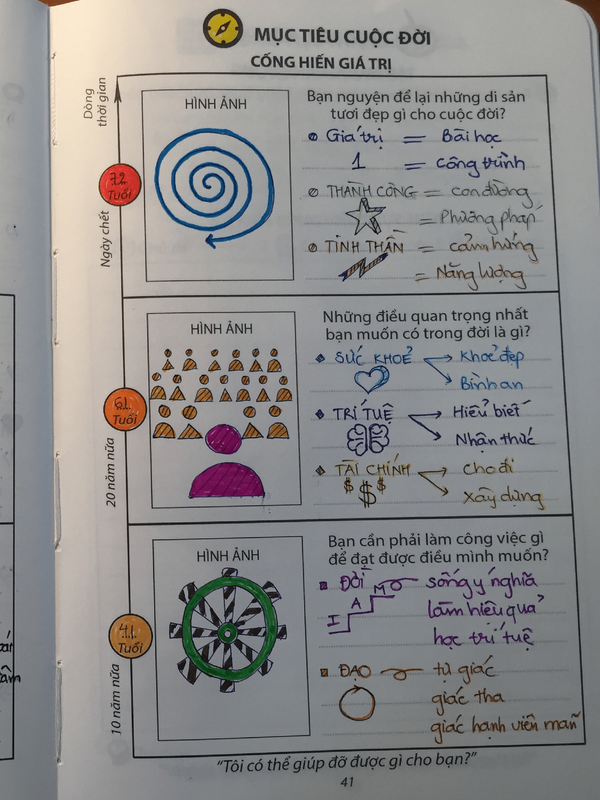 MỤC TIÊU CUỘC ĐỜI
CỐNG HIẾN GIÁ TRỊ
Dòng
thời gian
HÌNH ẢNH
Bạn nguyện để lại những di sản
tươi đẹp gì cho cuộc đời?
Giá trị = Bài học
1 = công trình
THÀNH CÔNG = con đường
= Phương pháp
TINH THẦN = cảm hứng
= Năng lượng
72
Tuổi
Ngày chết
HÌNH ẢNH
Những điều quan trọng nhất
bạn muốn có trong đời là gì?
SỨC KHOẺ Khoẻ đẹp
Bình an
TRÍ TUỆ Hiểu biết
Nhận thức
TÀI CHÍNH Cho đi
$ $ $ Xây dựng
61
Tuổi
20 năm nữa
HÌNH ẢNH
Bạn cần phải làm công việc gì
để đạt được điều mình muốn?
ĐỜI sống ý nghĩa
I A M làm hiệu quả
học trí tuệ
ĐẠO tự giác
giác tha
giác hạnh viên mãn
41
Tuổi
10 năm nữa
"Tôi có thể giúp đỡ được gì cho bạn?"
41